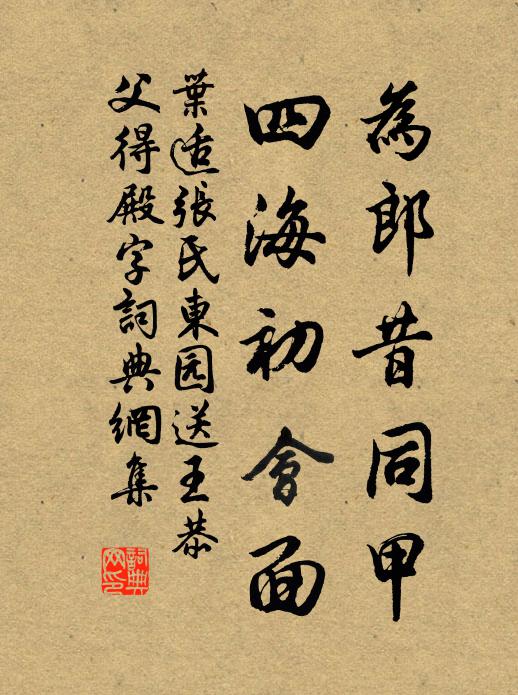 為郎昔同甲
四海初會面
葉适張氏東园送王恭
父得殿字詞典網集
詞典
网印